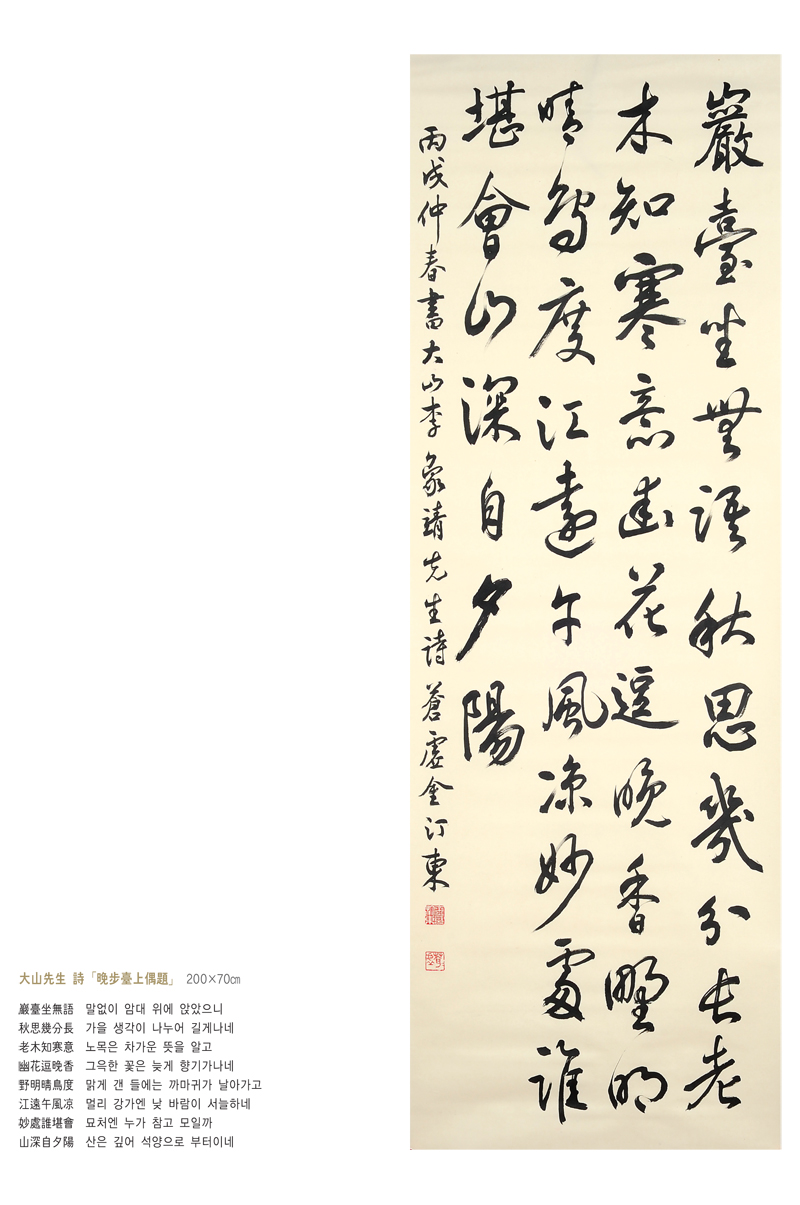 巖臺坐無語秋思幾分長老
木知寒意幽花逗晩香野明
晴鳥度江遠午風凉妙處誰
堪會山深自夕陽
丙戌仲春書大山李象靖先生詩 蒼虛金汀東
大山先生 詩「晩步臺上偶題」 200×70㎝
巖臺坐無語 말없이 암대 위에 앉았으니
秋思幾分長 가을 생각이 나누어 길게나네
老木知寒意 노목은 차가운 뜻을 알고
幽花逗晩香 그윽한 꽃은 늦게 향기가나네
野明晴鳥度 맑게 갠 들에는 까마귀가 날아가고
江遠午風凉 멀리 강가엔 낮 바람이 서늘하네
妙處誰堪會 묘처엔 누가 참고 모일까
山深自夕陽 산은 깊어 석양으로 부터이네